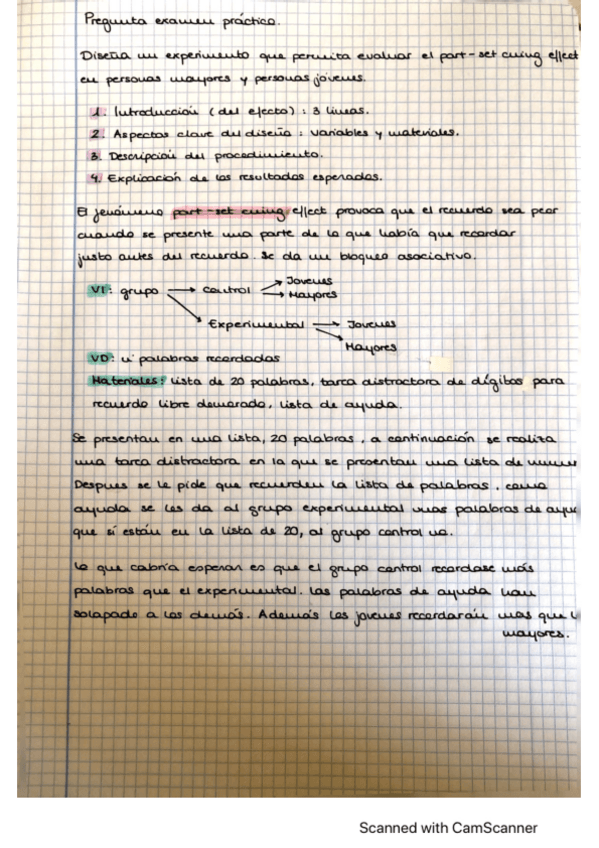 Pregunta examen práctico.
Diseña un experimento que permita evaluar el part-set cuing effect
en personas mayores y personas jóvenes.
1. Introducción (del efecto): 3 líneas.
2. Aspectos clave del diseño: variables y materiales.
3. Descripción del procedimiento.
4. Explicación de los resultados esperados.
El fenómeno part-set cuing effect provoca que el recuerdo sea peor
cuando se presente una parte de lo que había que recordar
justo antes del recuerdo. Se da un bloqueo asociativo.
VI: grupo → control → Jovenes
→ Mayores
→ Experimental → Jovenes
→ Mayores
VD: nº palabras recordadas
Materiales: lista de 20 palabras, tarea distractora de dígitos para
recuerdo libre demorado, lista de ayuda.
Se presentan en una lista, 20 palabras, a continuación se realiza
una tarea distractora en la que se presentan una lista de
Despues se le pide que recuerden la lista de palabras, como
ayuda se les da al grupo experimental unas palabras de
que sí están en la lista de 20, al grupo control no.
Lo que cabría esperar es que el grupo control recordase más
palabras que el experimental. Las palabras de ayuda han
solapado a las demás. Además los jovenes recordarán mas que
mayores.
Scanned with CamScanner